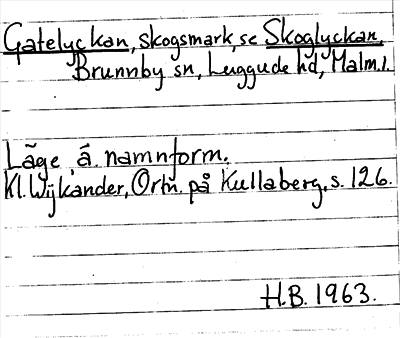 Gatelyckan, skogsmark, se Skoglyckan,
Brunnby sn, Luggude hd, Malm.l.
Läge å namnform.
Kl. Wijkander, Ortn. på Kullaberg, s. 126.
H.B. 1963.